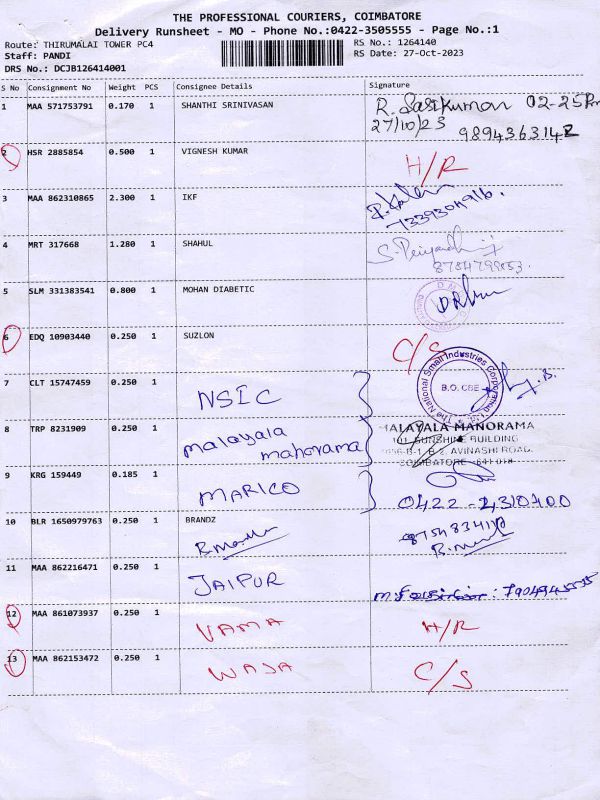 THE PROFESSIONAL COURIERS, COIMBATORE
Delivery Runsheet - MO - Phone No.:0422-3505555 - Page No.:1
Route: THIRUMALAI TOWER PC4 RS No.: 1264140
Staff: PANDI RS Date: 27-Oct-2023
DRS No.: DCJB126414001
S No Consignment No Weight PCS Consignee Details Signature
1 MAA 571753791 0.170 1 SHANTHI SRINIVASAN R. Sasikumar 02-25Pm
27/10/23 9894363142
2 HSR 2885854 0.500 1 VIGNESH KUMAR H/R
3 MAA 862310865 2.300 1 IKF
4 MRT 317668 1.280 1 SHAHUL
5 SLM 331383541 0.800 1 MOHAN DIABETIC
6 EDQ 10903440 0.250 1 SUZLON C/S
7 CLT 15747459 0.250 1 NSIC The National Small Industries Corporation Ltd. B.O. CBE
8 TRP 8231909 0.250 1 malayala manorama MALAYALA MANORAMA
SUNSHINE BUILDING
AVINASHI ROAD.
COIMBATORE
9 KRG 159449 0.185 1 MARICO 0422-2310400
10 BLR 1650979763 0.250 1 BRANDZ
11 MAA 862216471 0.250 1 JAIPUR
12 MAA 861073937 0.250 1 VAMA H/R
13 MAA 862153472 0.250 1 WASA C/S